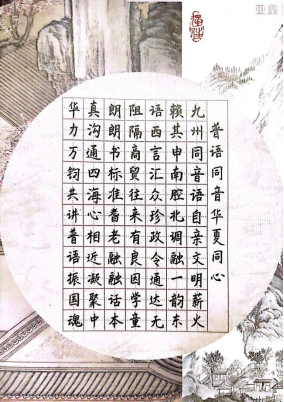 亚鑫
普语同音华夏同心
九州同音语自亲文明薪火
赖其申南腔北调融一韵东
语西言汇众珍政令通达无
阻隔商贸往来有良因学童
朗朗书标准耆老融融话本
真沟通四海心相近凝聚中
华力万钧共讲普语振国魂